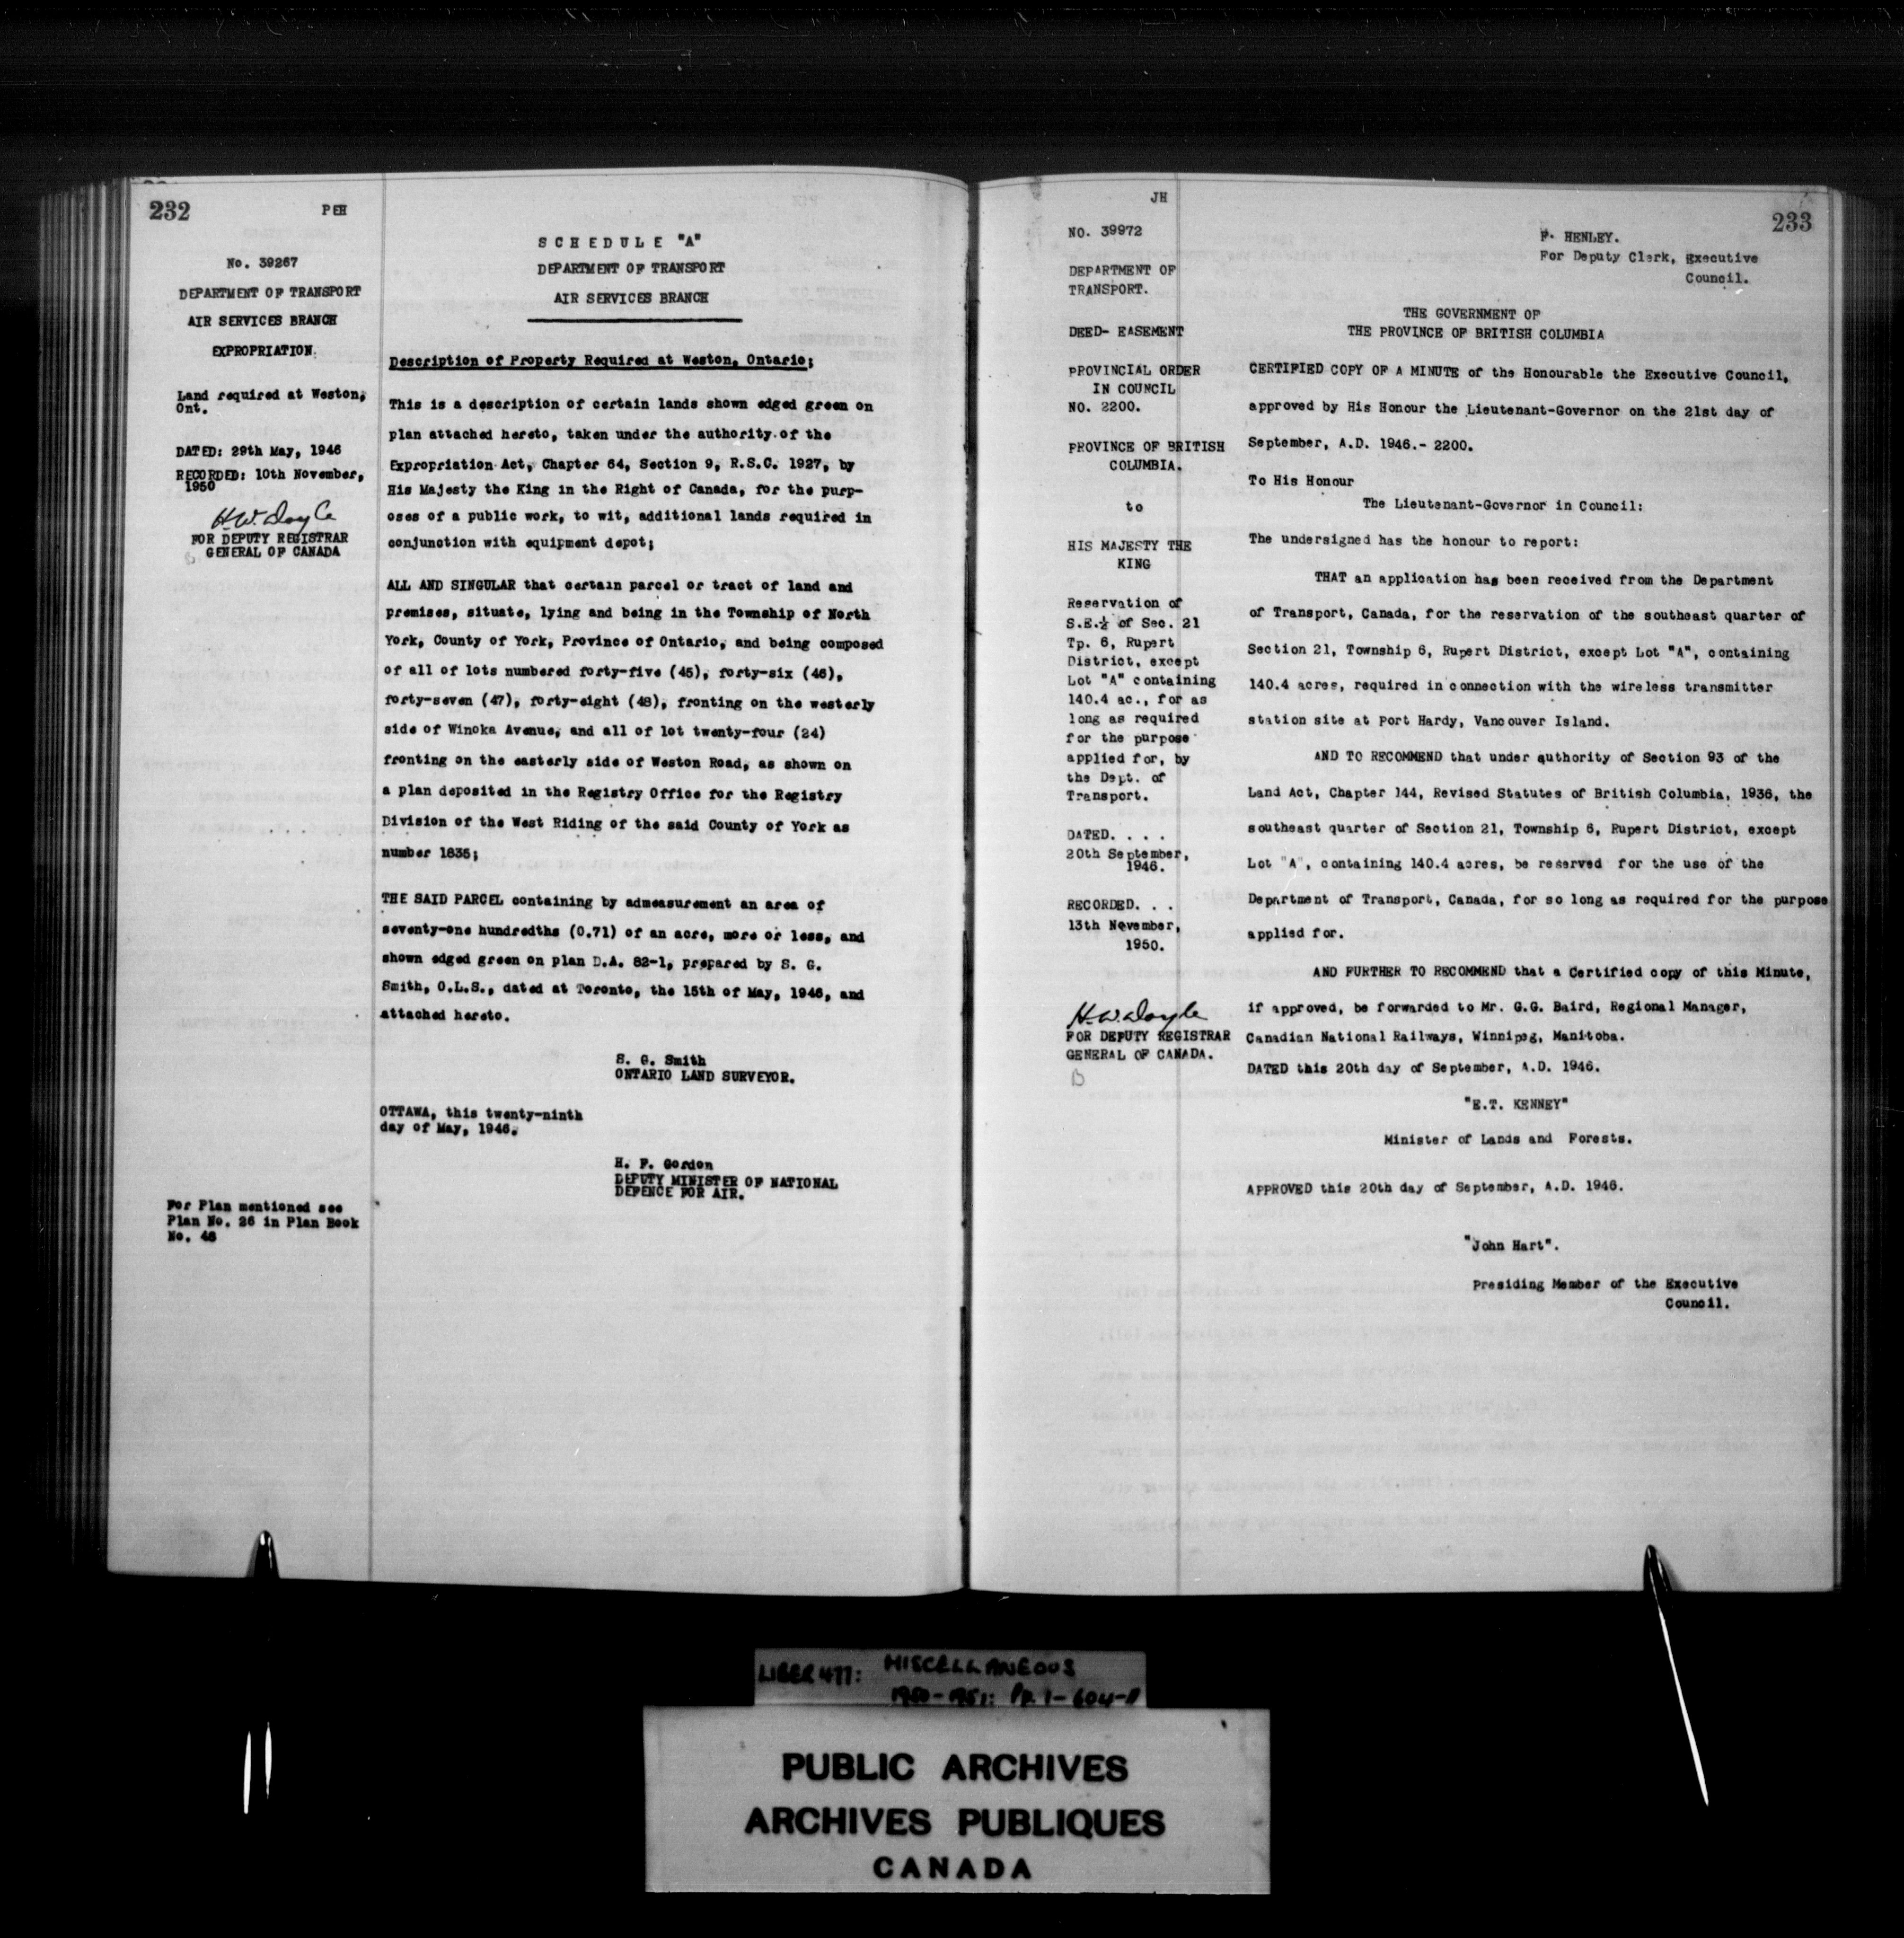 232
PEH
No. 39267
DEPARTMENT OF TRANSPORT
AIR SERVICES BRANCH
EXPROPRIATION.
Land required at Weston,
Ont.
DATED: 29th May, 1946
RECORDED: 10th November,
1950
H.W. Doyle
FOR DEPUTY REGISTRAR
GENERAL OF CANADA
For Plan mentioned see
Plan No. 26 in Plan Book
No. 46
SCHEDULE "A"
DEPARTMENT OF TRANSPORT
AIR SERVICES BRANCH
Description of Property Required at Weston, Ontario;
This is a description of certain lands shown edged green on
plan attached hereto, taken under the authority of the
Expropriation Act, Chapter 64, Section 9, R.S.C. 1927, by
His Majesty the King in the Right of Canada, for the purp-
oses of a public work, to wit, additional lands required in
conjunction with equipment depot;
ALL AND SINGULAR that certain parcel or tract of land and
premises, situate, lying and being in the Township of North
York, County of York, Province of Ontario, and being composed
of all of lots numbered forty-five (45), forty-six (46),
forty-seven (47), forty-eight (48), fronting on the westerly
side of Winoka Avenue, and all of lot twenty-four (24)
fronting on the easterly side of Weston Road, as shown on
a plan deposited in the Registry Office for the Registry
Division of the West Riding of the said County of York as
number 1835;
THE SAID PARCEL containing by admeasurement an area of
seventy-one hundredths (0.71) of an acre, more or less, and
shown edged green on plan D.A. 82-1, prepared by S. G.
Smith, O.L.S., dated at Toronto, the 15th of May, 1946, and
attached hereto.
S. G. Smith
ONTARIO LAND SURVEYOR.
OTTAWA, this twenty-ninth
day of May, 1946.
H. F. Gordon
DEPUTY MINISTER OF NATIONAL
DEFENCE FOR AIR.
JH
233
NO. 39972
DEPARTMENT OF
TRANSPORT.
DEED- EASEMENT
PROVINCIAL ORDER
IN COUNCIL
NO. 2200.
PROVINCE OF BRITISH
COLUMBIA.
to
HIS MAJESTY THE
KING
Reservation of
S.E.¼ of Sec. 21
Tp. 6, Rupert
District, except
Lot "A" containing
140.4 ac., for as
long as required
for the purpose
applied for, by
the Dept. of
Transport.
DATED. . . .
20th September,
1946.
RECORDED. . .
13th November,
1950.
H.W. Doyle
FOR DEPUTY REGISTRAR
GENERAL OF CANADA.
B
F. HENLEY.
For Deputy Clerk, Executive
Council.
THE GOVERNMENT OF
THE PROVINCE OF BRITISH COLUMBIA
CERTIFIED COPY OF A MINUTE of the Honourable the Executive Council,
approved by His Honour the Lieutenant-Governor on the 21st day of
September, A.D. 1946.- 2200.
To His Honour
The Lieutenant-Governor in Council:
The undersigned has the honour to report:
THAT an application has been received from the Department
of Transport, Canada, for the reservation of the southeast quarter of
Section 21, Township 6, Rupert District, except Lot "A", containing
140.4 acres, required in connection with the wireless transmitter
station site at Port Hardy, Vancouver Island.
AND TO RECOMMEND that under authority of Section 93 of the
Land Act, Chapter 144, Revised Statutes of British Columbia, 1936, the
southeast quarter of Section 21, Township 6, Rupert District, except
Lot "A", containing 140.4 acres, be reserved for the use of the
Department of Transport, Canada, for so long as required for the purpose
applied for.
AND FURTHER TO RECOMMEND that a Certified copy of this Minute,
if approved, be forwarded to Mr. G.G. Baird, Regional Manager,
Canadian National Railways, Winnipeg, Manitoba.
DATED this 20th day of September, A.D. 1946.
"E.T. KENNEY"
Minister of Lands and Forests.
APPROVED this 20th day of September, A.D. 1946.
"John Hart".
Presiding Member of the Executive
Council.
LIBER 477: MISCELLANEOUS
1950-1951: Pp. 1-604-
PUBLIC ARCHIVES
ARCHIVES PUBLIQUES
CANADA